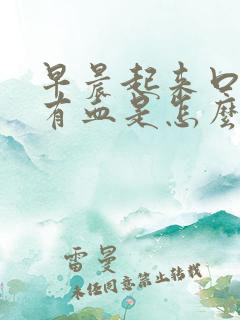 早晨起来口
有血是怎麽
雷曼
未经同意禁止转载